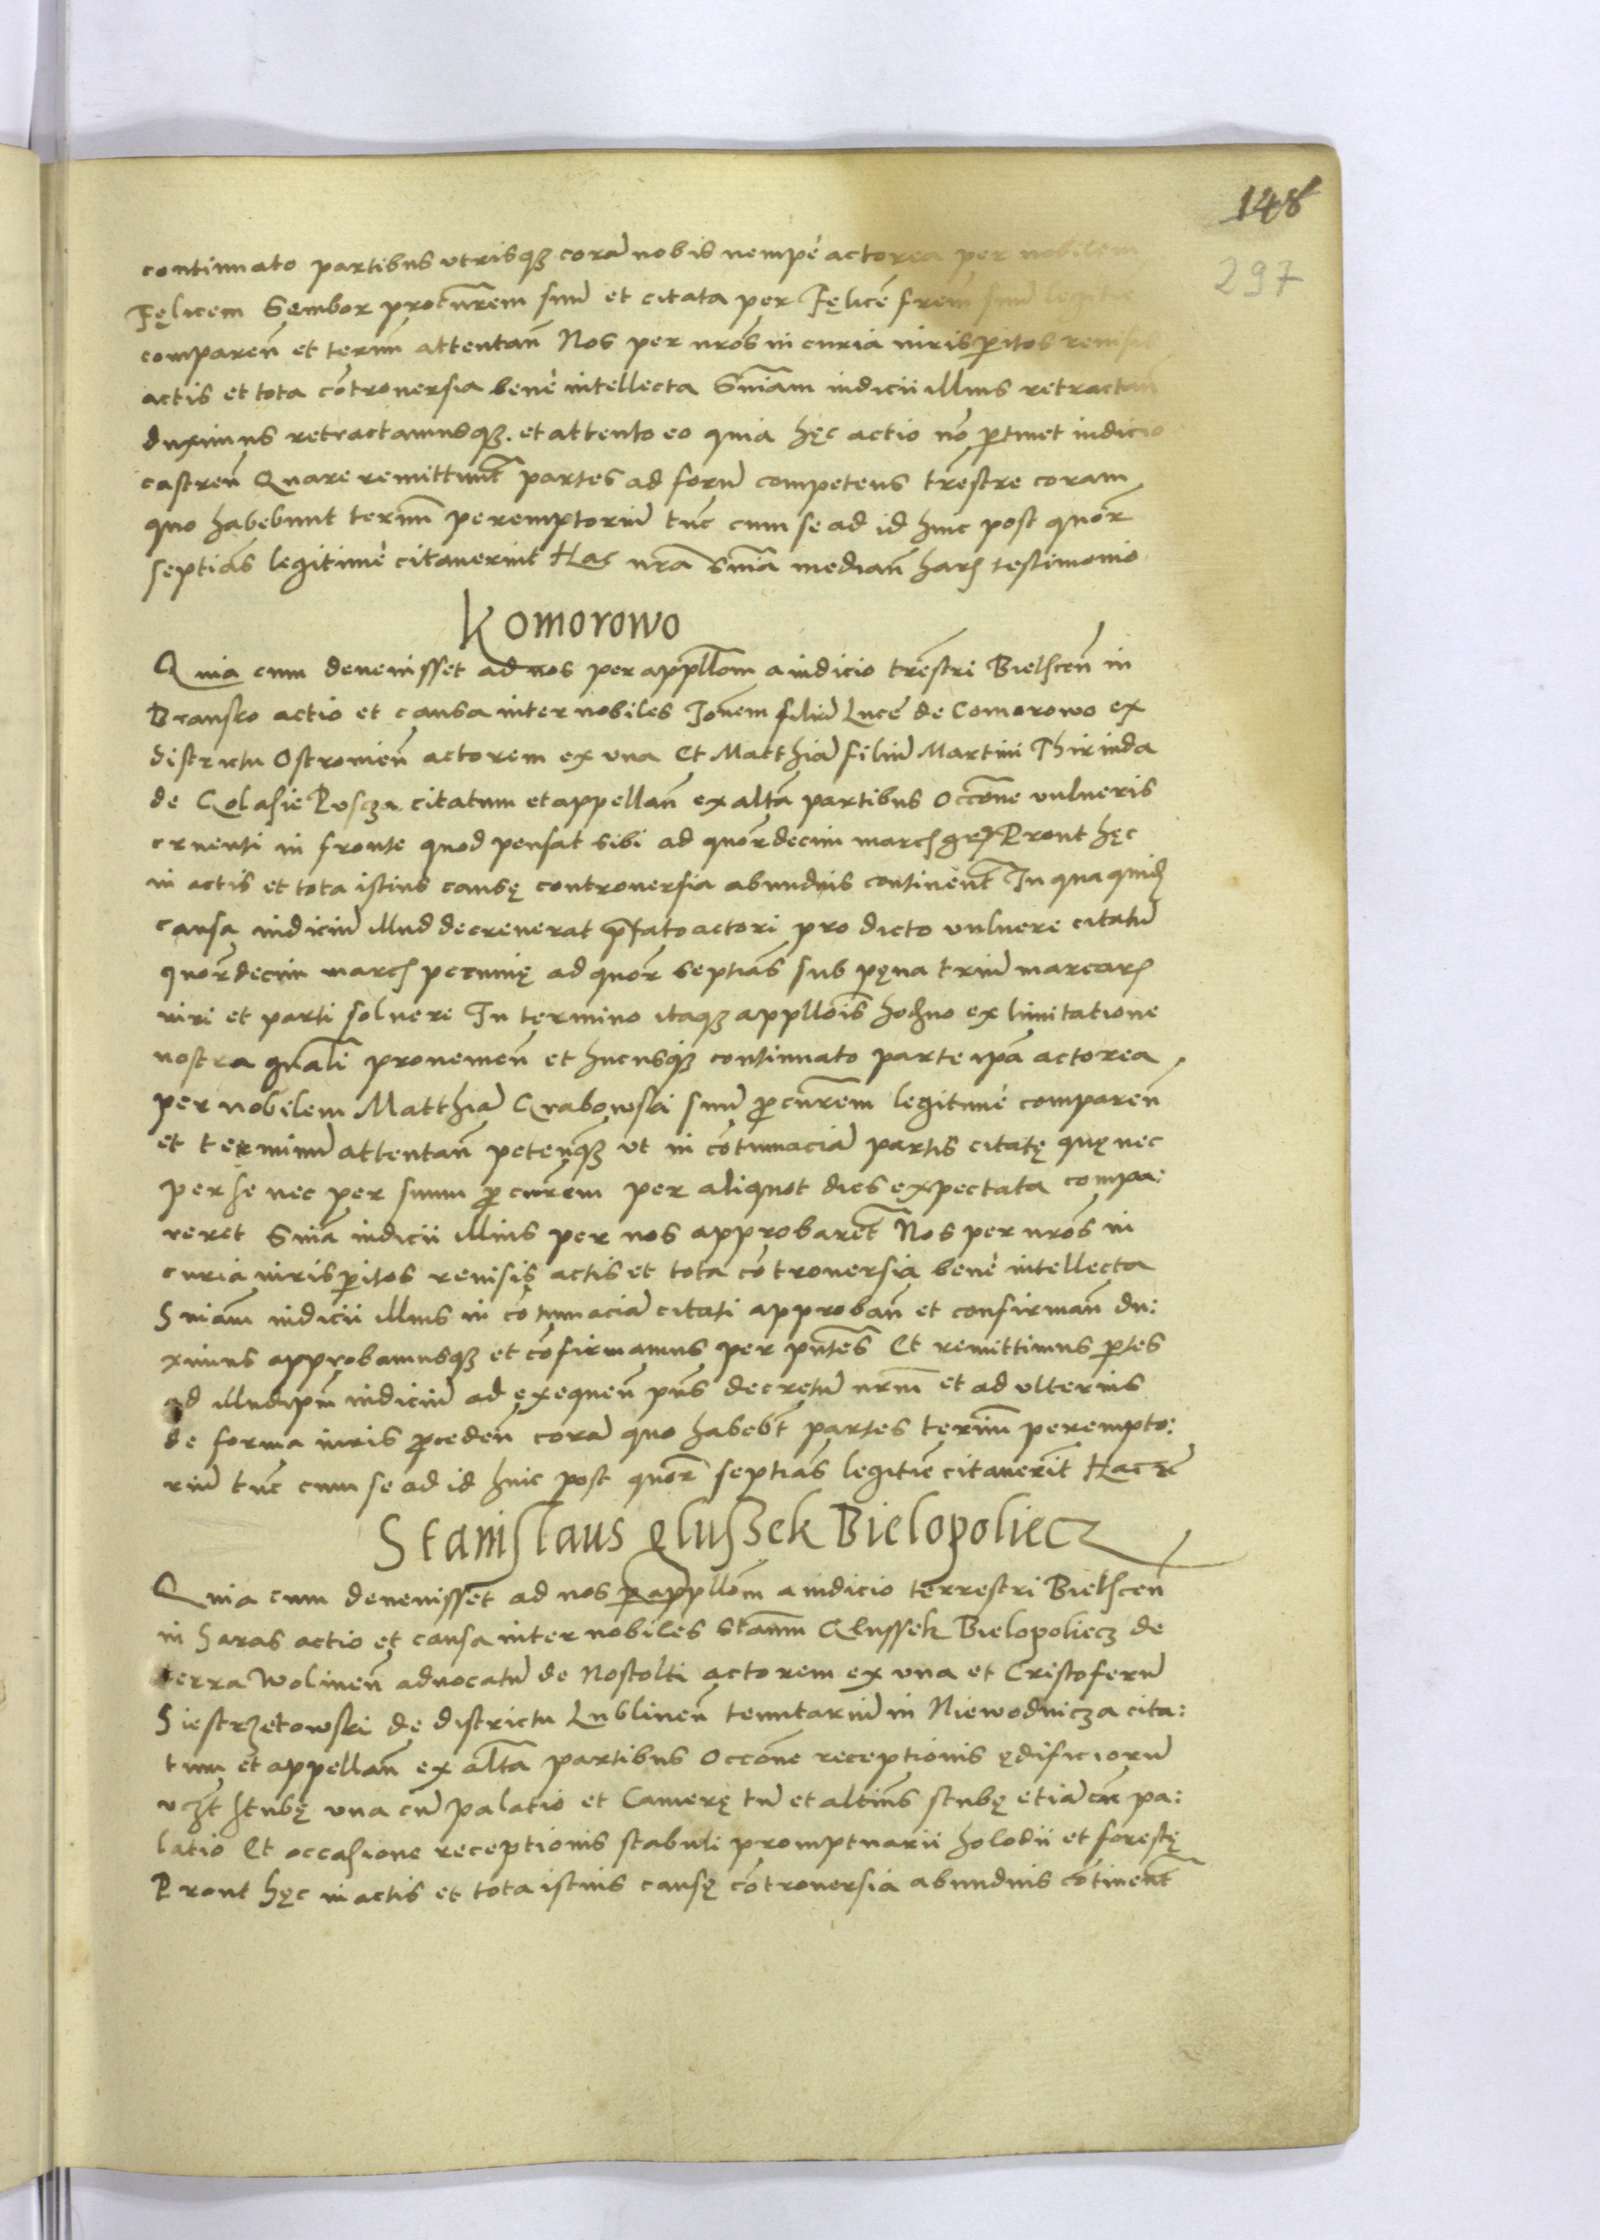 148
297
continuato partibus utrisq₃ corā nobis nempè actorea per nobilem
Fęlicem Sembor procurrem̄ suū et citata per Fęlicē frēm suū legit
compareñ et terīm attentañ Nos per nr̄os in curia iurisp̱itos reuisis
actis et tota cōtrouersia benè intellecta Sniām iudicii illius retractañ
duximus retractamusq₃. et attento eo quia hęc actio nō p̱tinet iudicio
castreñ Quare remittunt̄ partes ad forū competens tr̄estre coram
quo habebunt terīm peremptoriū tūc cum se ad id hinc post quōr
septiās legitimè citauerint Hac nr̄a sn̄ia mediañ har̨ testimonio
Komorowo
Quia cum deuenisset ad nos per appll̄om a iudicio tr̄estri Bielscen̄ in
Bransko actio et causa inter nobiles Joñem filiū Lucę de Comorowo ex
districtu Ostrouieñ actorem ex una Et Matthiā filiū Martini Thirinda
de Golasie Pusza citatum et appellañ ex altā partibus Occōne vulneris
cruenti in fronte quod pensat sibi ad quōrdecim march̨ gr̄ Prout hęc
in actis et tota istius causę controuersia abundius continent̄ In qua quid̨
causa iudiciū illud decreuerat p̄fato actori pro dicto vulnere citatū
quōrdecim march̨ pecunię ad quōr septiās sub pęna triū marcar̨
iuri et parti soluere In termino itaq₃ appll̄ois hod̨no ex limitatione
nostra gñali prouenieñ et hucusq₃ continuato parte ip̄a actorea
per nobilem Matthiā Grabowski suū p̱curr̄em legitimè compareñ
et terminū attentañ petenq₃ ut in cōtumaciā partis citatę quę nec
per se nec per suum p̱currēm per aliquot dies expectata compa:
reret Sn̄ia iudicii illius per nos approbaret̄ Nos per nr̄os in
curia iurisp̱itos reuisis actis et tota cōtrouersia benè intellecta
Sniām iudicii illius in cōtumaciā citati approbañ et confirmañ du:
ximus approbamusq₃ et cōfirmamus per pn̄tes Et remittimus p̱tes
ad illud ip̄m iudiciū ad exequeñ pn̄s decretū nr̄m et ad ulterius
de forma iuris p̱cedeñ corā quo habebt̄ partes terīm perempto:
riū tūc cum se ad id hinc post quōr septiās legitiē citauerit̄ Hac rē
Stanislaus Glussek Bielopoliecz
Quia cum deuenisset ad nos p̱ appll̄om a iudicio terrestri Bielsceñ
in Saras actio et causa inter nobiles Stañm Glussek Bielopoliecz de
terra Wolineñ aduocatū de Nostolti actorem ex una et Cristoferū
Siestrzetowski de districtu Lublineñ tenutariū in Niewodnicza cita:
tum et appellañ ex altā partibus Occōne receptionis ędificiorū
vz̄t stubę una cū palatio et Camerę tū et alteriūs stubę etiā cū pa:
latio Et occasione receptionis stabuli promptuarii holodii et forestę
Prout hęc in actis et tota istius causę cōtrouersia abundius cōtinent̄